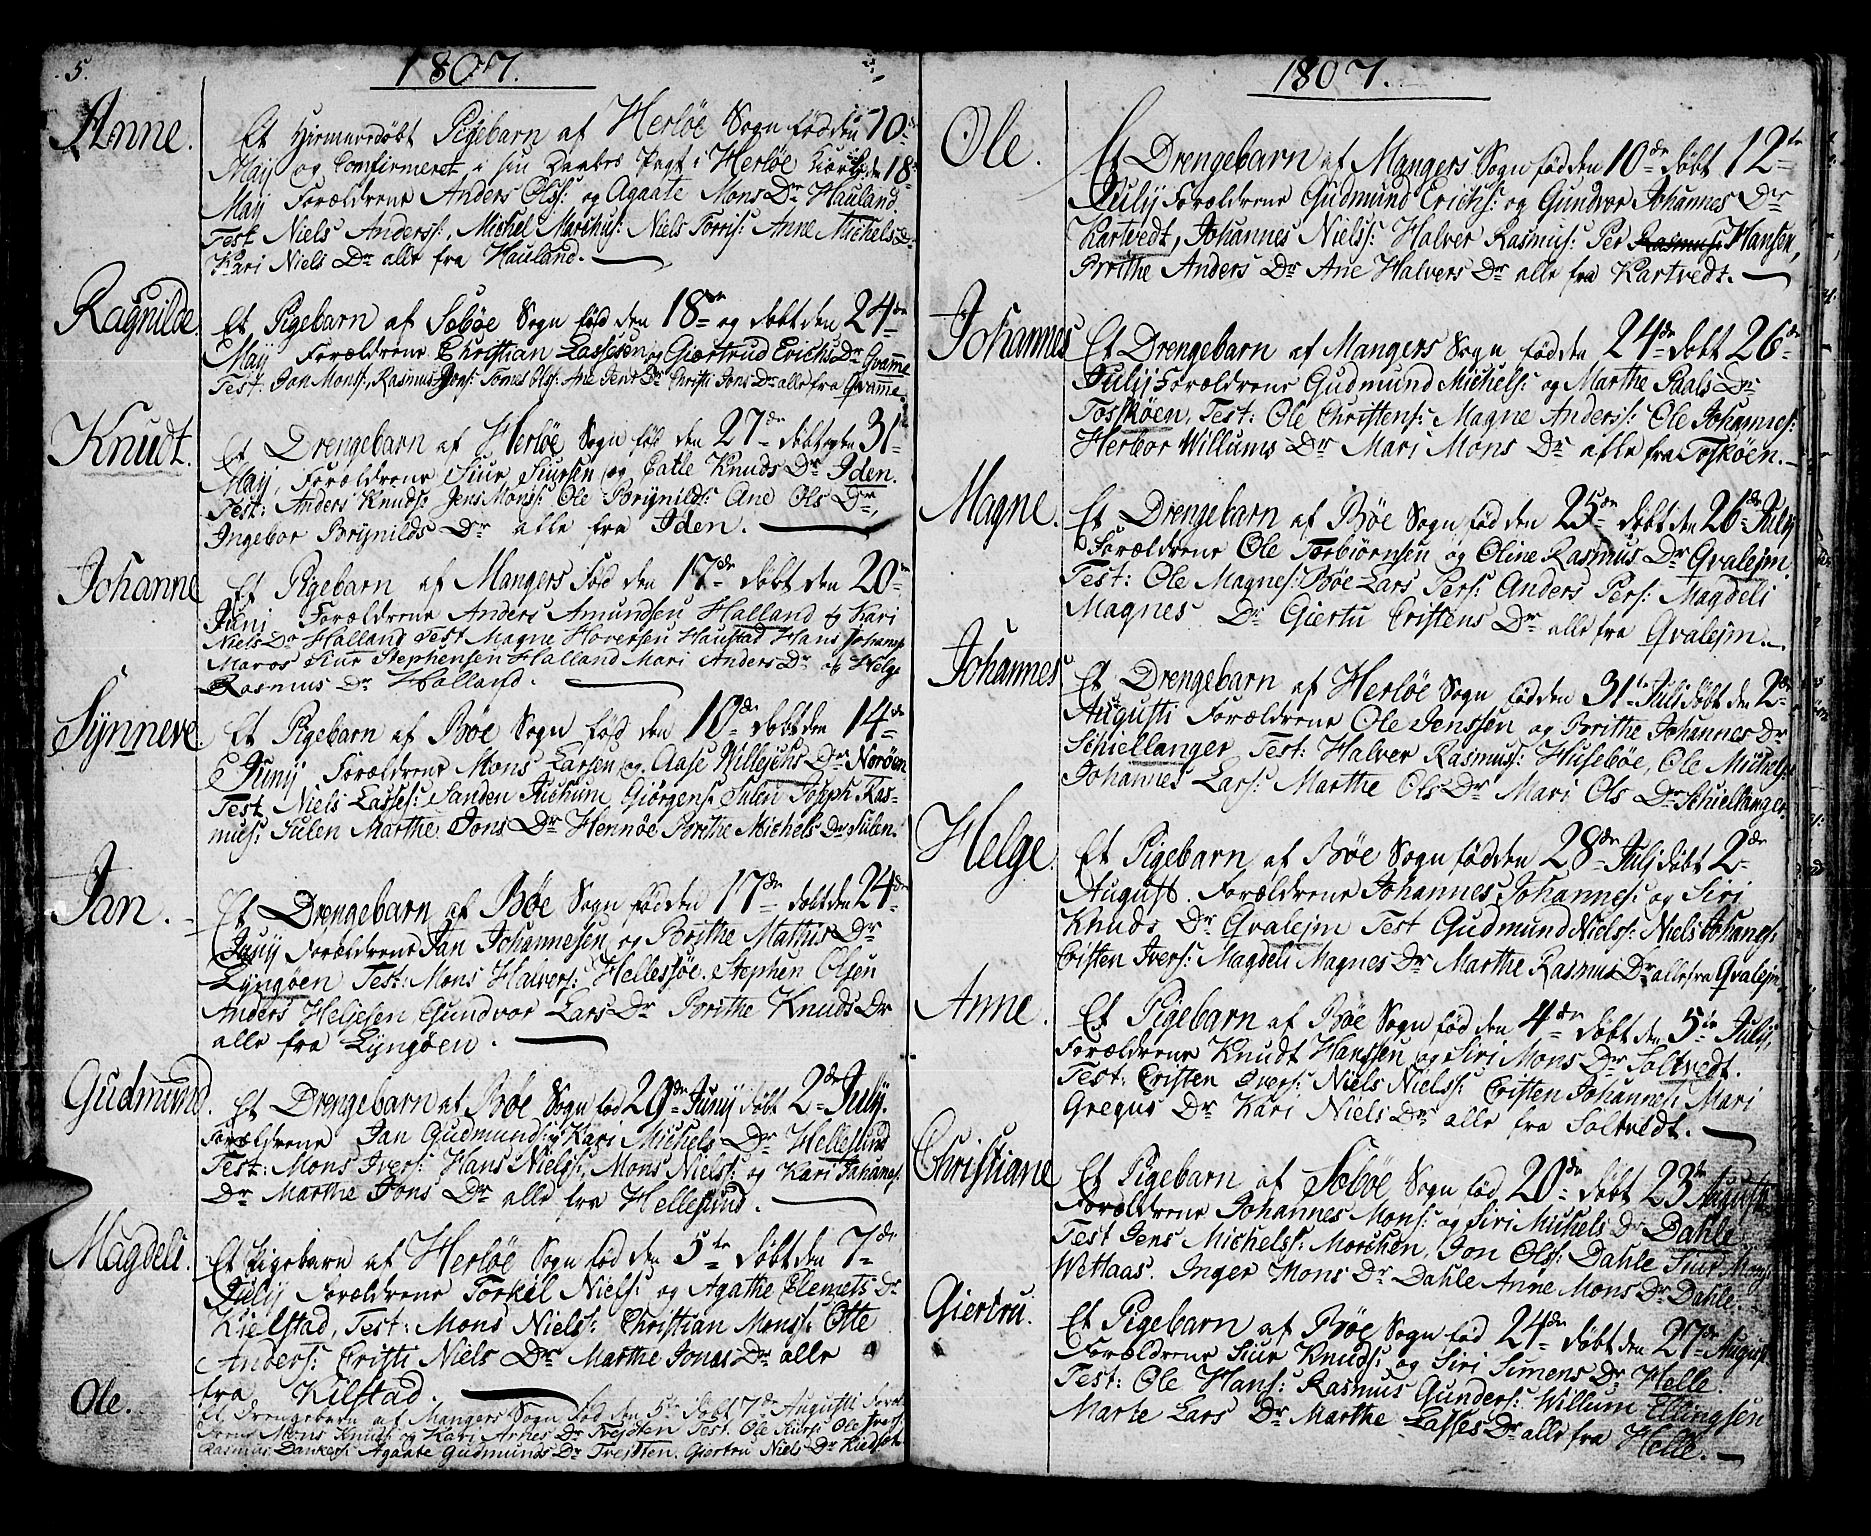 5.
1807.
Anne.
Et Hiemmedøbt Pigebarn af Herløe Sogn fød den 10de
Maij og Confirmeret i sin Daabes Pagt i Herløe Kirke den 18
Maij Forældrene Anders Ols: og Agaate Mons Dr Hauland.
Test Niels Anders: Michel Marchus: Niels Torris: Anne Michels Dr
Kari Niels Dr alle fra Hauland.
Ragnilde
Et Pigebarn af Sæbøe Sogn fød den 18de og døbt den 24de
Maij Forældrene Christian Lassesen og Giærtrud Erichs Dr Qvamme
Test: Jan Mons:, Rasmus Jons: Tones Ols: Ane Jens Dr Christi Jons Dr alle fra Qvamme.
Knudt.
Et Drengebarn af Herløe Sogn fød den 27de døbt den 31te
Maij, Forældrene Siur Siursen og Catle Knuds Dr Iden.
Test: Anders Knuds: Jens Mons: Ole Brijnilds: Ane Ols Dr,
Ingebor Brijnilds Dr alle fra Iden.
Johanne
Et Pigebarn af Mangers Fød den 17de døbt den 20de
Junj Forældrene Anders Amundsen Halland og Kari
Niels Dr Halland Test Magne Hoversen Haustad Hans Johans
Maros Siur Stephensen Halland Mari Anders Dr og Helge
Rasmus Dr Halland.
Synneve.
Et Pigebarn af Bøe Sogn fød den 10de døbt den 14de
Junij Forældrene Mons Larsen og Aase Willesens Dr Norøen
Test Niels Lasses: Sanden Juchum Giørgens: Sulen Joseph Ras-
mus: Sulen Marthe Jons Dr Hennøe Brithe Michels Dr Sulen.
Jan.
Et Drengebarn af Bøe Sogn fød den 17de døbt den 24de
Junij Forældrene Jan Johannesen og Brithe Mathis Dr
Lyngøen Test: Mons Haivers: Hellessøe. Stephen Olsen
Anders Heljesen Gundvor Lars Dr Brithe Knuds Dr
alle fra Lyngøen.
Gudmund.
Et Drengebarn af Bøe Sogn fød 29de Junij døbt 2de Julij.
Forældrene Jan Gudmunds: og Kari Michels Dr Hellesund
Test: Mons Ivers: Hans Niels: Mons Niels: og Kari Johanes
Dr Marthe Jons Dr alle fra Hellesund.
Magdeli.
Et Pigebarn af Herløe Sogn fød den 5te døbt den 7de
Julij Forældrene Torkel Niels: og Agathe Clemets Dr
Kielstad, Test: Mons Niels: Christian Mons: Otte
Anders: Cristi Niels Dr Marthe Jonas Dr alle
fra Kilstad.
Ole.
Et Drengebarn af Mangers Sogn fød den 5te døbt 7de Augusti Foræl
drene Mons Knuds: og Kari Arnes Dr Trejdten Test. Ole Siurs: Ole Ivers:
Rasmus Dankers: Agaate Gudmunds Dr Trejdten. Giertru Niels Dr
1807.
Ole.
Et Drengebarn af Mangers Sogn fød den 10de døbt 12te
Julij Forældrene Gudmund Erichs: og Gundvor Johannes Dr
Kartvedt, Johannes Niels: Halver Rasmus: Per Rasmus: Hansen,
Brithe Anders Dr Ane Halvers Dr alle fra Kartvedt.
Johannes
Et Drengebarn af Mangers Sogn fød den 24de døbt 26de
Julij Forældrene Gudmund Michels: og Marthe Paals Dr
Toskøen, Test: Ole Christens: Magne Anders: Ole Johannes:
Herbor Willums Dr Mari Mons Dr alle fra Toskøen.
Magne.
Et Drengebarn af Bøe Sogn fød den 25de døbt den 26de Julij
Forældrene Ole Torbiørnsen og Oline Rasmus Dr Qvalejm
Test: Ole Magnes: Bøe Lars Pers: Anders Pers: Magdeli
Magnes Dr Giertu Cristens Dr alle fra Qvalejm.
Johannes
Et Drengebarn af Herløe Sogn fød den 31te Juli døbt den 2de
Augusti Forældrene Ole Jenssen og Brithe Johannes Dr
Schiellanger Test: Halver Rasmus: Husebøe, Ole Michels:
Johannes Lars: Marthe Ols Dr Mari Ols Dr Schiellanger.
Helge.
Et Pigebarn af Bøe Sogn fød den 28de Julj døbt 2de
August. Forældrene Johannes Johannes: og Siri
Knuds Dr Qvalejm Test Gudmund Niels: Niels Johanes:
Cristen Ivers: Magdeli Magnes Dr Marthe Rasmus Dr alle fra Qvalejm.
Anne.
Et Pigebarn af Bøe Sogn fød den 4de døbt den 5te Julij,
Forældrene Knudt Hanssen og Siri Mons Dr Soltvedt.
Test: Cristen Ivers: Niels Niels: Cristen Johannes: Mari
Gregus Dr Kari Niels Dr alle fra Soltvedt.
Christiane
Et Pigebarn af Sæbøe Sogn fød 20de døbt 23de Augusti
Forældrene Johannes Mons: og Siri Michels Dr Dahle
Test Jens Michels: Morchen, Jon Ols: Dahle Siur Mons:
Wetlaas. Inger Mons Dr Dahle Anne Mons Dr Dahle.
Giertru.
Et Pigebarn af Bøe Sogn fød 24de døbt den 27de August
Forældrene Siur Knuds: og Siri Simens Dr Helle.
Test: Ole Hans: Rasmus Gunders: Willum Ellingsen
Marte Lars Dr Marthe Lasses Dr alle fra Helle.